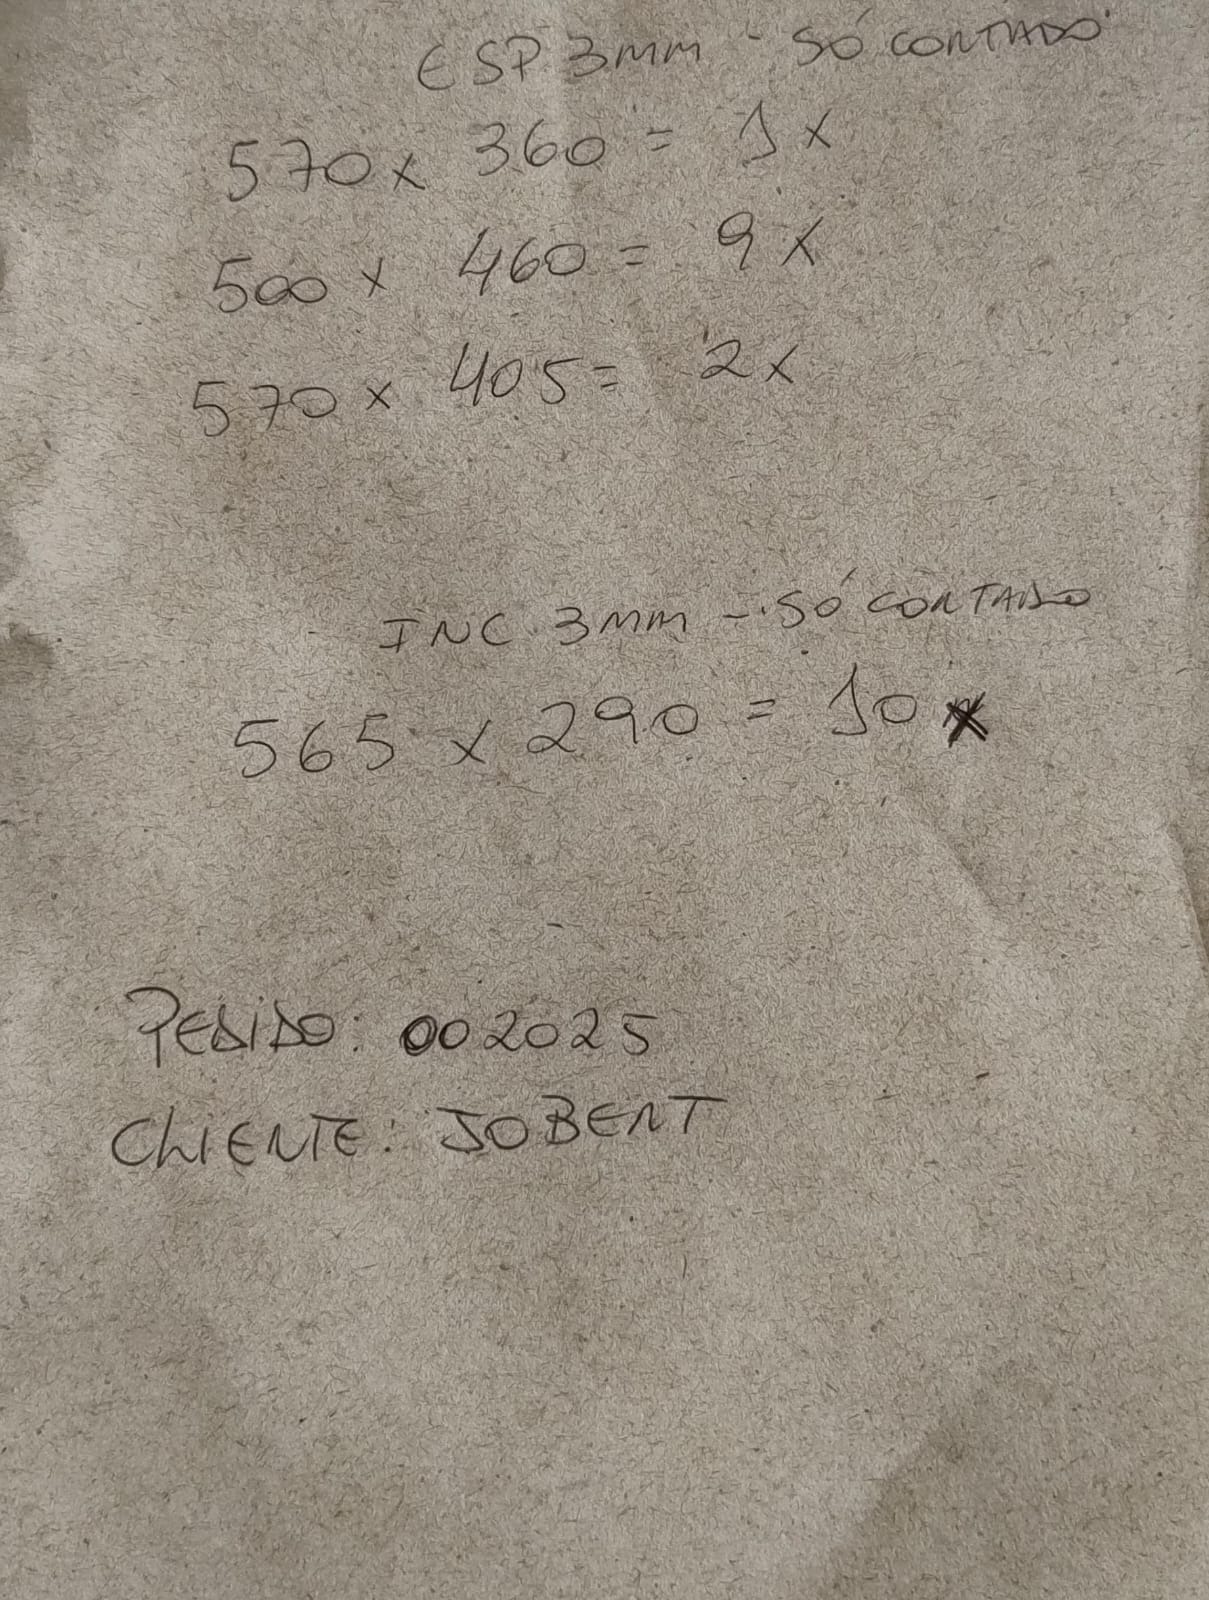 ESP 3MM - SÓ CORTADO
570 x 360 = 1x
500 x 460 = 9x
570 x 405 = 2x
INC 3MM - SÓ CORTADO
565 x 290 = 10x
PEDIDO: 002025
CLIENTE: JOBERT